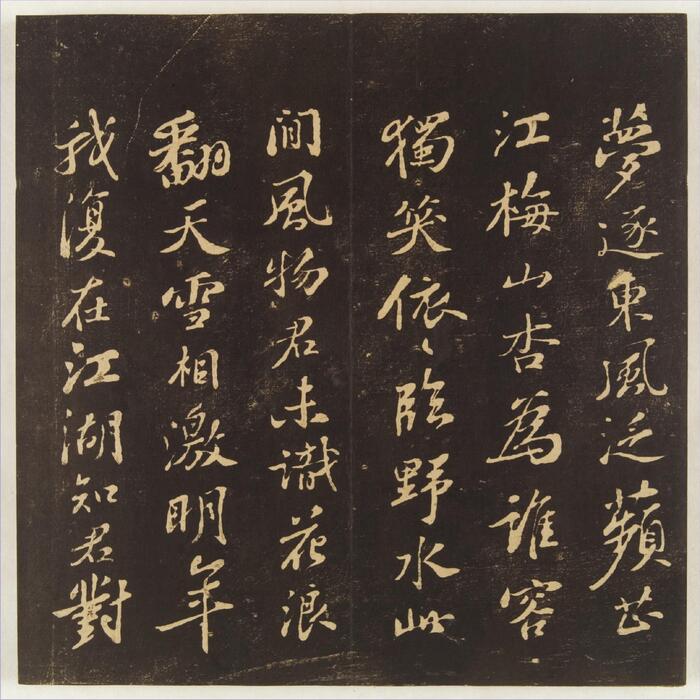 夢逐東風泛蘋芷
江梅山杏為誰容
獨笑依〻臨野水此
間風物君未識花浪
翻天雪相激明年
我復在江湖知君對